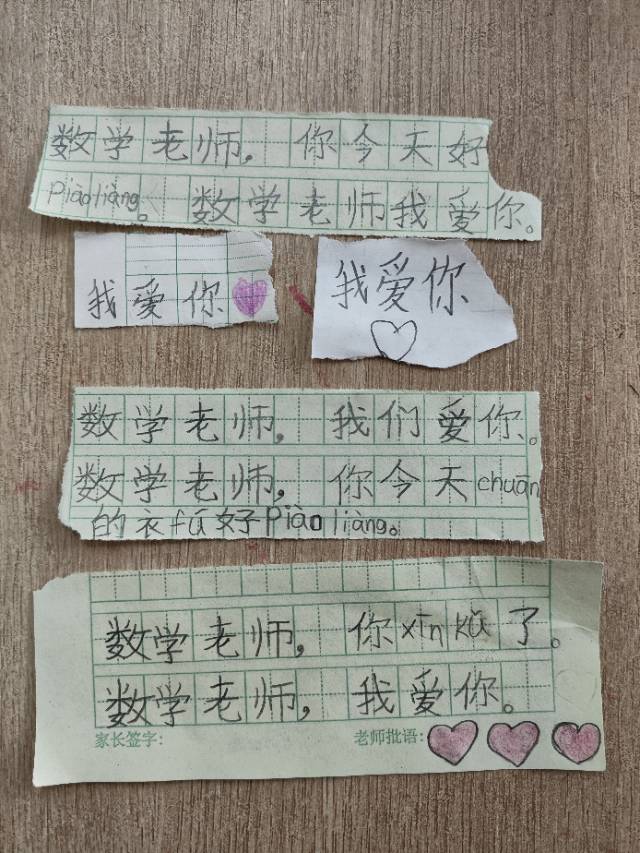 数学老师，你今天好
Piàoliàng。数学老师我爱你。
我爱你
我爱你
数学老师，我们爱你。
数学老师，你今天chuān
的衣fú好Piàoliàng。
数学老师，你xīn kǔ了。
数学老师，我爱你。
家长签字：
老师批语：